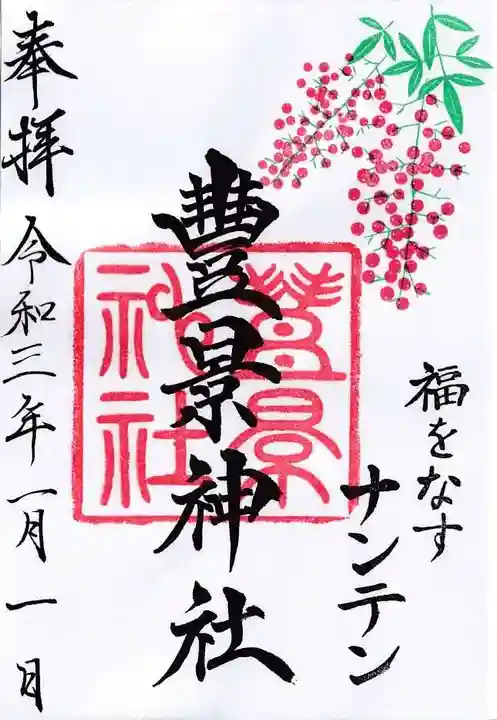 福をなす
ナンテン
豊景神社
豊景神社
奉拝 令和三年一月一日